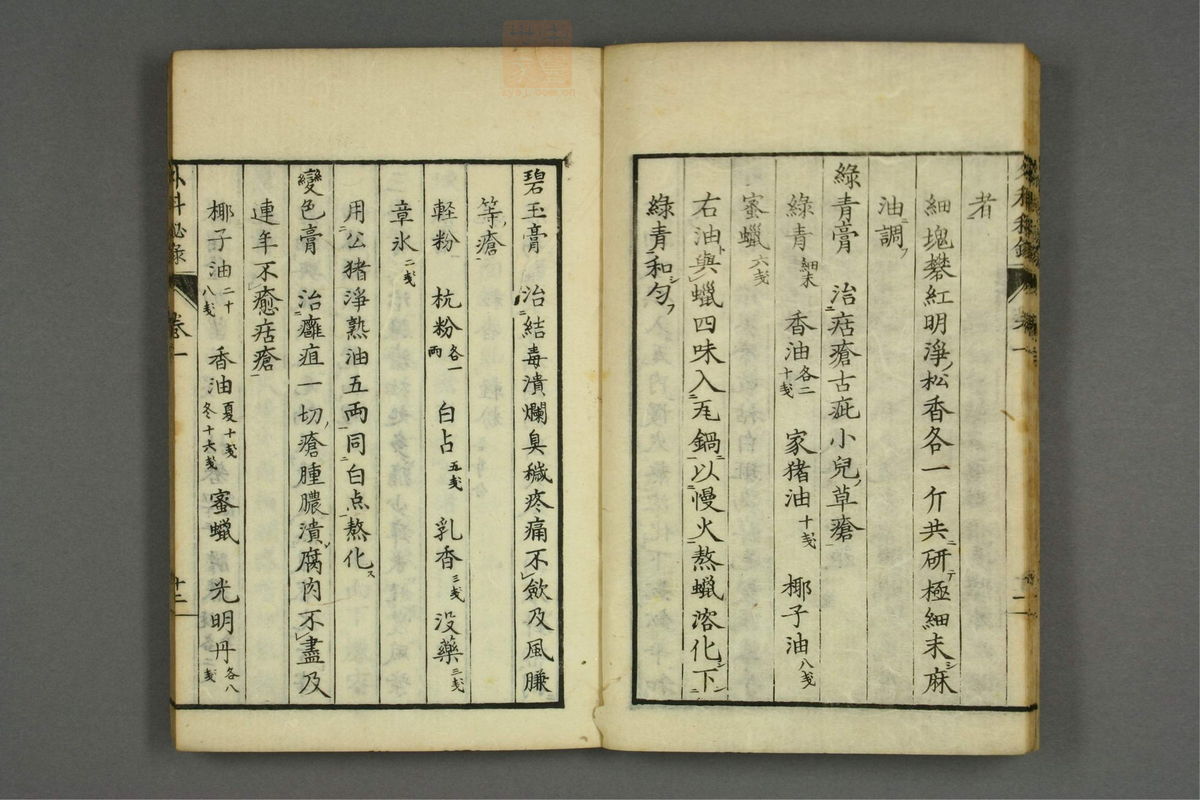 者
細塊礬紅明淨松香各一斤共研極細末麻
油調
綠青膏 治痁瘡古疵小兒草瘡
綠青細末 香油各二十戔 家猪油十戔 椰子油八戔
蜜蠟六戔
右油與蠟四味入瓦鍋以慢火熬蠟溶化下
綠青和勻
碧玉膏 治結毒潰爛臭穢疼痛不歛及風臁
等瘡
軽粉 杭粉各一両 白占五戔 乳香三戔 没藥三戔
章氷二戔
用公猪淨熟油五両同白点熬化
變色膏 治癰疽一切瘡腫膿潰腐肉不盡及
連年不癒痁瘡
椰子油二十八戔 香油夏十戔冬十六戔 蜜蠟 光明丹各八戔
外科秘录 卷一 十二